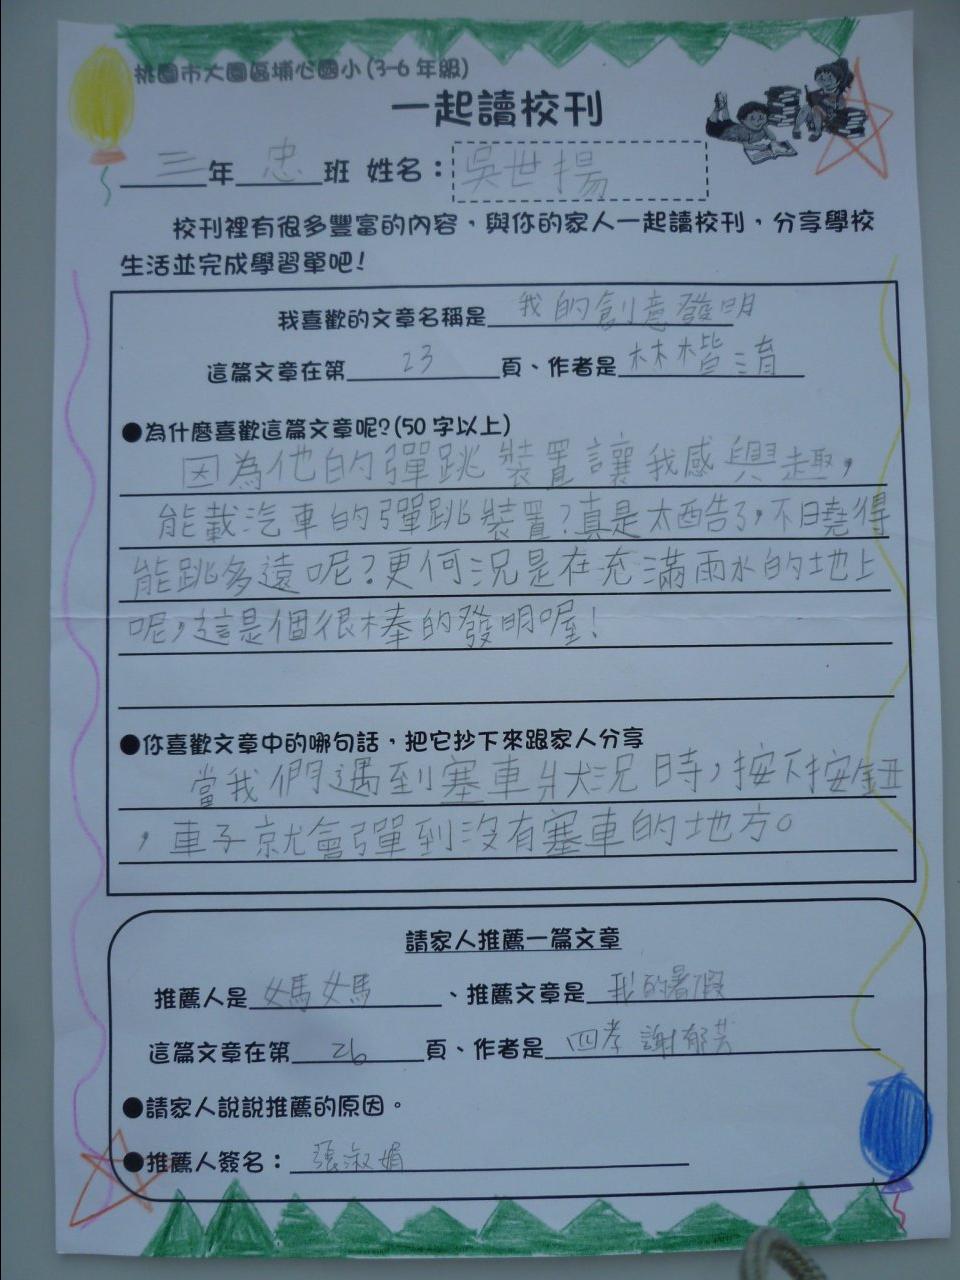 桃園市大園區埔心國小(3-6年級)
一起讀校刊
三年忠班 姓名：吳世揚
校刊裡有很多豐富的內容，與你的家人一起讀校刊，分享學校
生活並完成學習單吧！
我喜歡的文章名稱是我的創意發明
這篇文章在第23頁、作者是林楷淯
●為什麼喜歡這篇文章呢?(50字以上)
因為他的彈跳裝置讓我感興趣，
能載汽車的彈跳裝置？真是太酷了，不曉得
能跳多遠呢？更何況是在充滿雨水的地上
呢，這是個很棒的發明喔！
●你喜歡文章中的哪句話，把它抄下來跟家人分享
當我們遇到塞車狀況時，按下按鈕
，車子就會彈到沒有塞車的地方。
請家人推薦一篇文章
推薦人是媽媽、推薦文章是我的暑假
這篇文章在第26頁、作者是四孝 謝郁芸
●請家人說說推薦的原因。
●推薦人簽名：張淑娟